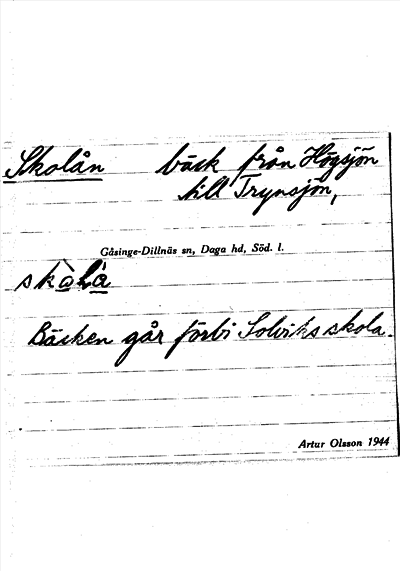 Skolån bäck från Högsjön
till Trynsjön,
Gåsinge-Dillnäs sn, Daga hd, Söd. l.
Bäcken går förbi Solviks skola.
Artur Olsson 1944